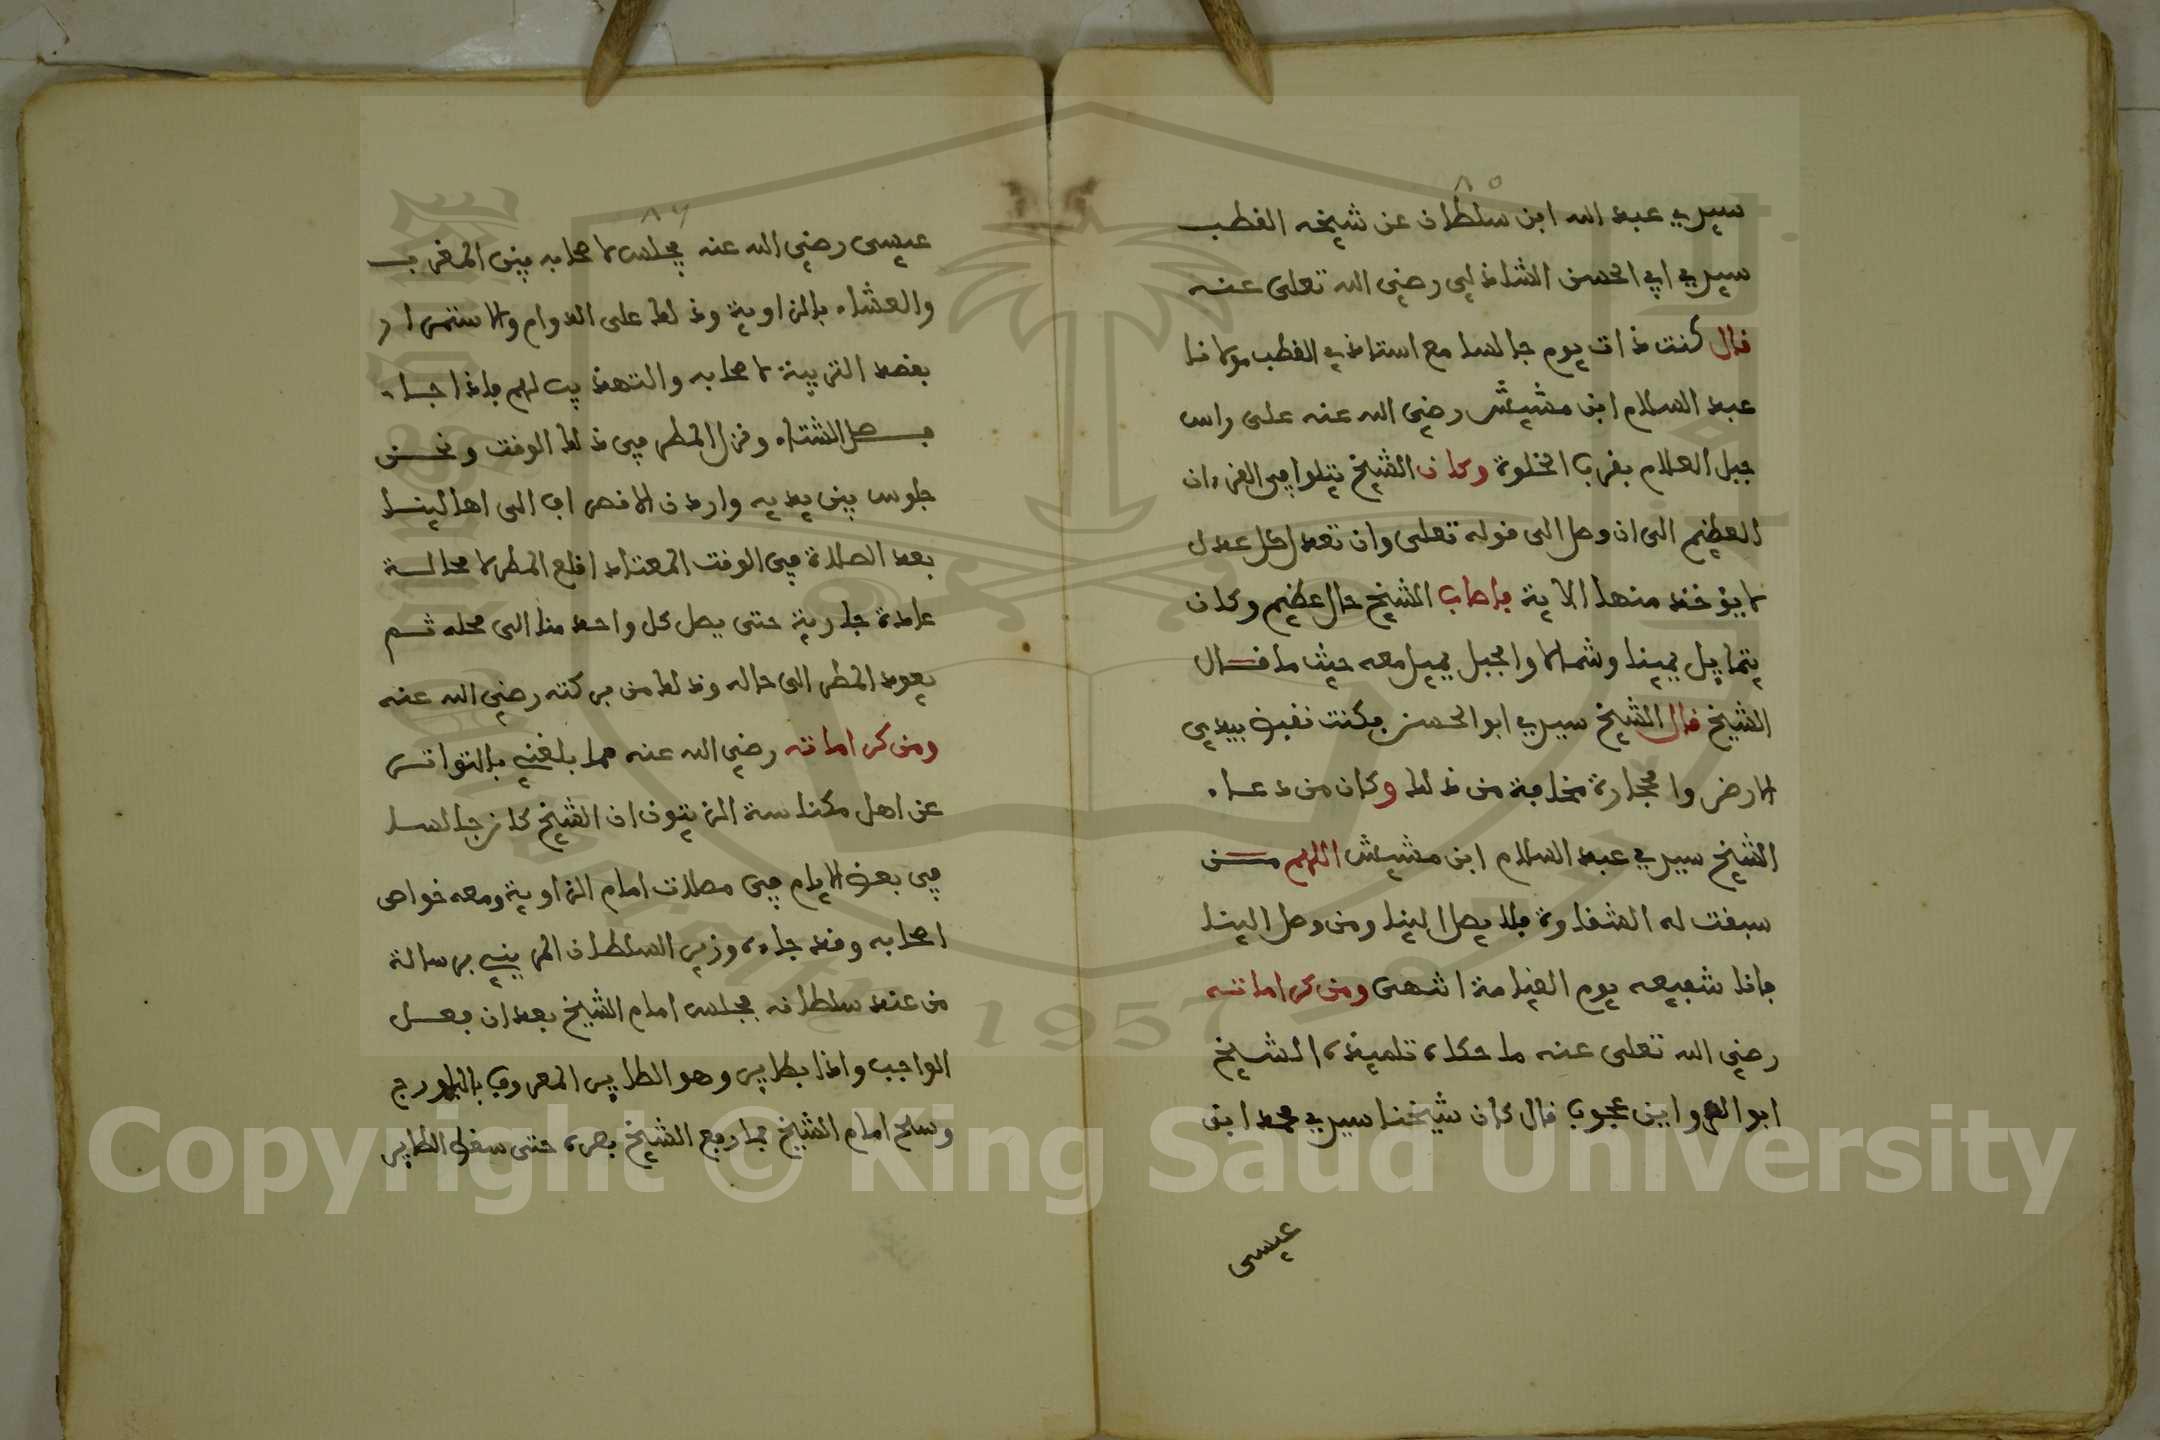 ٨٥
سيدي عبد الله ابن سلطان عن شيخه القطب
سيدي ابي الحسن الشاذلي رضي الله تعلى عنه
قال كنت ذات يوم جالسا مع استاذي القطب مولانا
عبد السلام ابن مشيش رضي الله عنه على راس
جبل العلام بقرب الخلوة وكان الشيخ يتلوا في القرءان
العظيم الى ان وصل الى قوله تعلى وان تعدل كل عدل
لا يؤخذ منها الاية فاصاب الشيخ حال عظيم وكان
يتمايل يمينا وشمالا والجبل يميل معه حيث ما مال
الشيخ قال الشيخ سيدي ابو الحسن فكنت نقبض بيدي
الارض والحجارة مخافة من ذلك وكان من دعاء
الشيخ سيدي عبد السلام ابن مشيش اللهم من
سبقت له الشقاوة فلا يصل الينا ومن وصل الينا
فانا شفيعه يوم القيامة انتهى ومن كراماته
رضي الله تعلى عنه ما حكاه تلميذه الشيخ
ابوا الرواين محجوب قال كان شيخنا سيدي محمد ابن
عيسى
٨٦
عيسى رضي الله عنه يجلس لاصحابه بين المغرب
والعشاء بالزاوية وذلك على الدوام والاستمرار
بقصد التربية لاصحابه والتهذيب لهم فاذا جاء
فصل الشتاء ونزل المطر في ذلك الوقت ونحن
جلوس بين يديه واردنا الانصراف الى اهالينا
بعد الصلاة في الوقت المعتاد اقلع المطر لا محالة
عادة جارية حتى يصل كل واحد منا الى محله ثم
يعود المطر الى حاله وذلك من بركته رضي الله عنه
ومن كراماته رضي الله عنه مما بلغني بالتواتر
عن اهل مكناسة الزيتون ان الشيخ كان جالسا
في بعض الايام في مصلات امام الزاوية ومعه خواص
اصحابه وقد جاءه وزير السلطان المريني برسالة
من عند سلطانه فجلس امام الشيخ بعد ان فعل
الواجب واذا بطاير وهو الطاير المعروف بالبلورج
وسلح امام الشيخ فما رفع الشيخ بصره حتى سقط الطاير
Copyright © King Saud University
King Saud University
1957